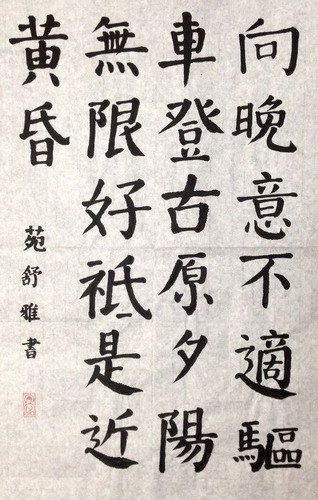 向晚意不適驅
車登古原夕陽
無限好祗是近
黃昏
苑舒雅書